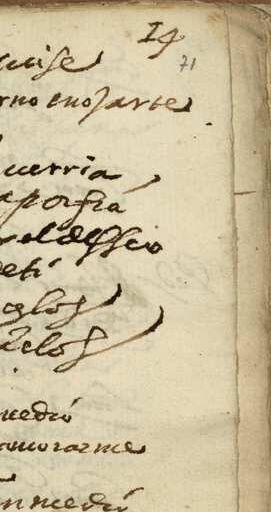 14
71
quise
rno enojarte
uerria
aporfia
r el desseo
deti
celos
zelos
medio
amorarme
n medio